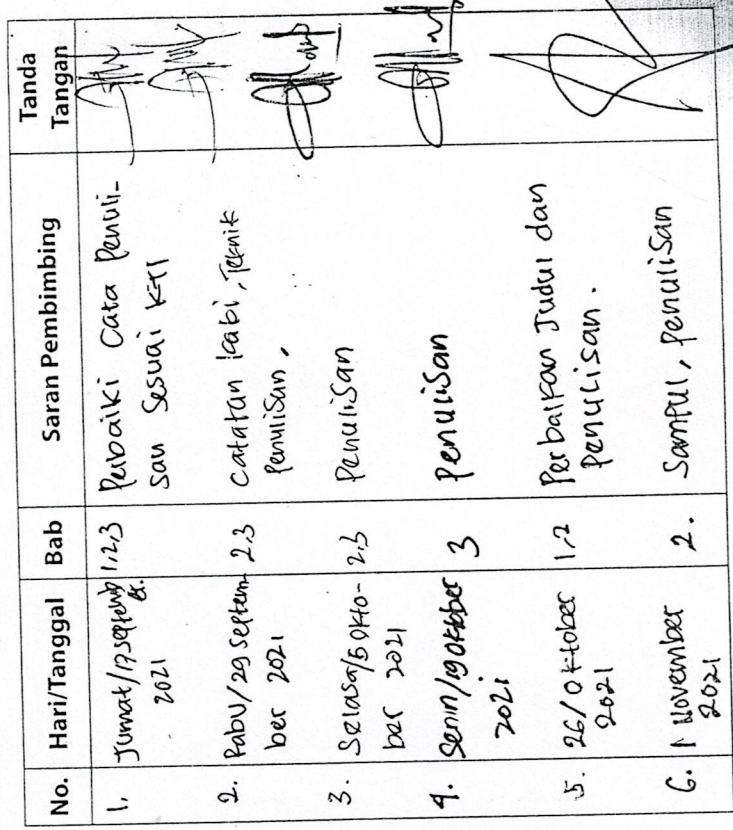 No. Hari/Tanggal Bab Saran Pembimbing Tanda Tangan
1. Jumat/17 September 2021 1,2,3 Perbaiki Cara Penuli-
san Sesuai KTI
2. Rabu/29 Septem- 2,3 catatan kaki, Teknik
ber 2021 Penulisan,
3. Selasa/5 Okto- 2,3 Penulisan
ber 2021
4. Senin/19 Oktober 3 penulisan
2021
5. 26/Oktober 1,2 Perbaikan Judul dan
2021 Penulisan.
6. 1 November 2. Sampul, penulisan
2021